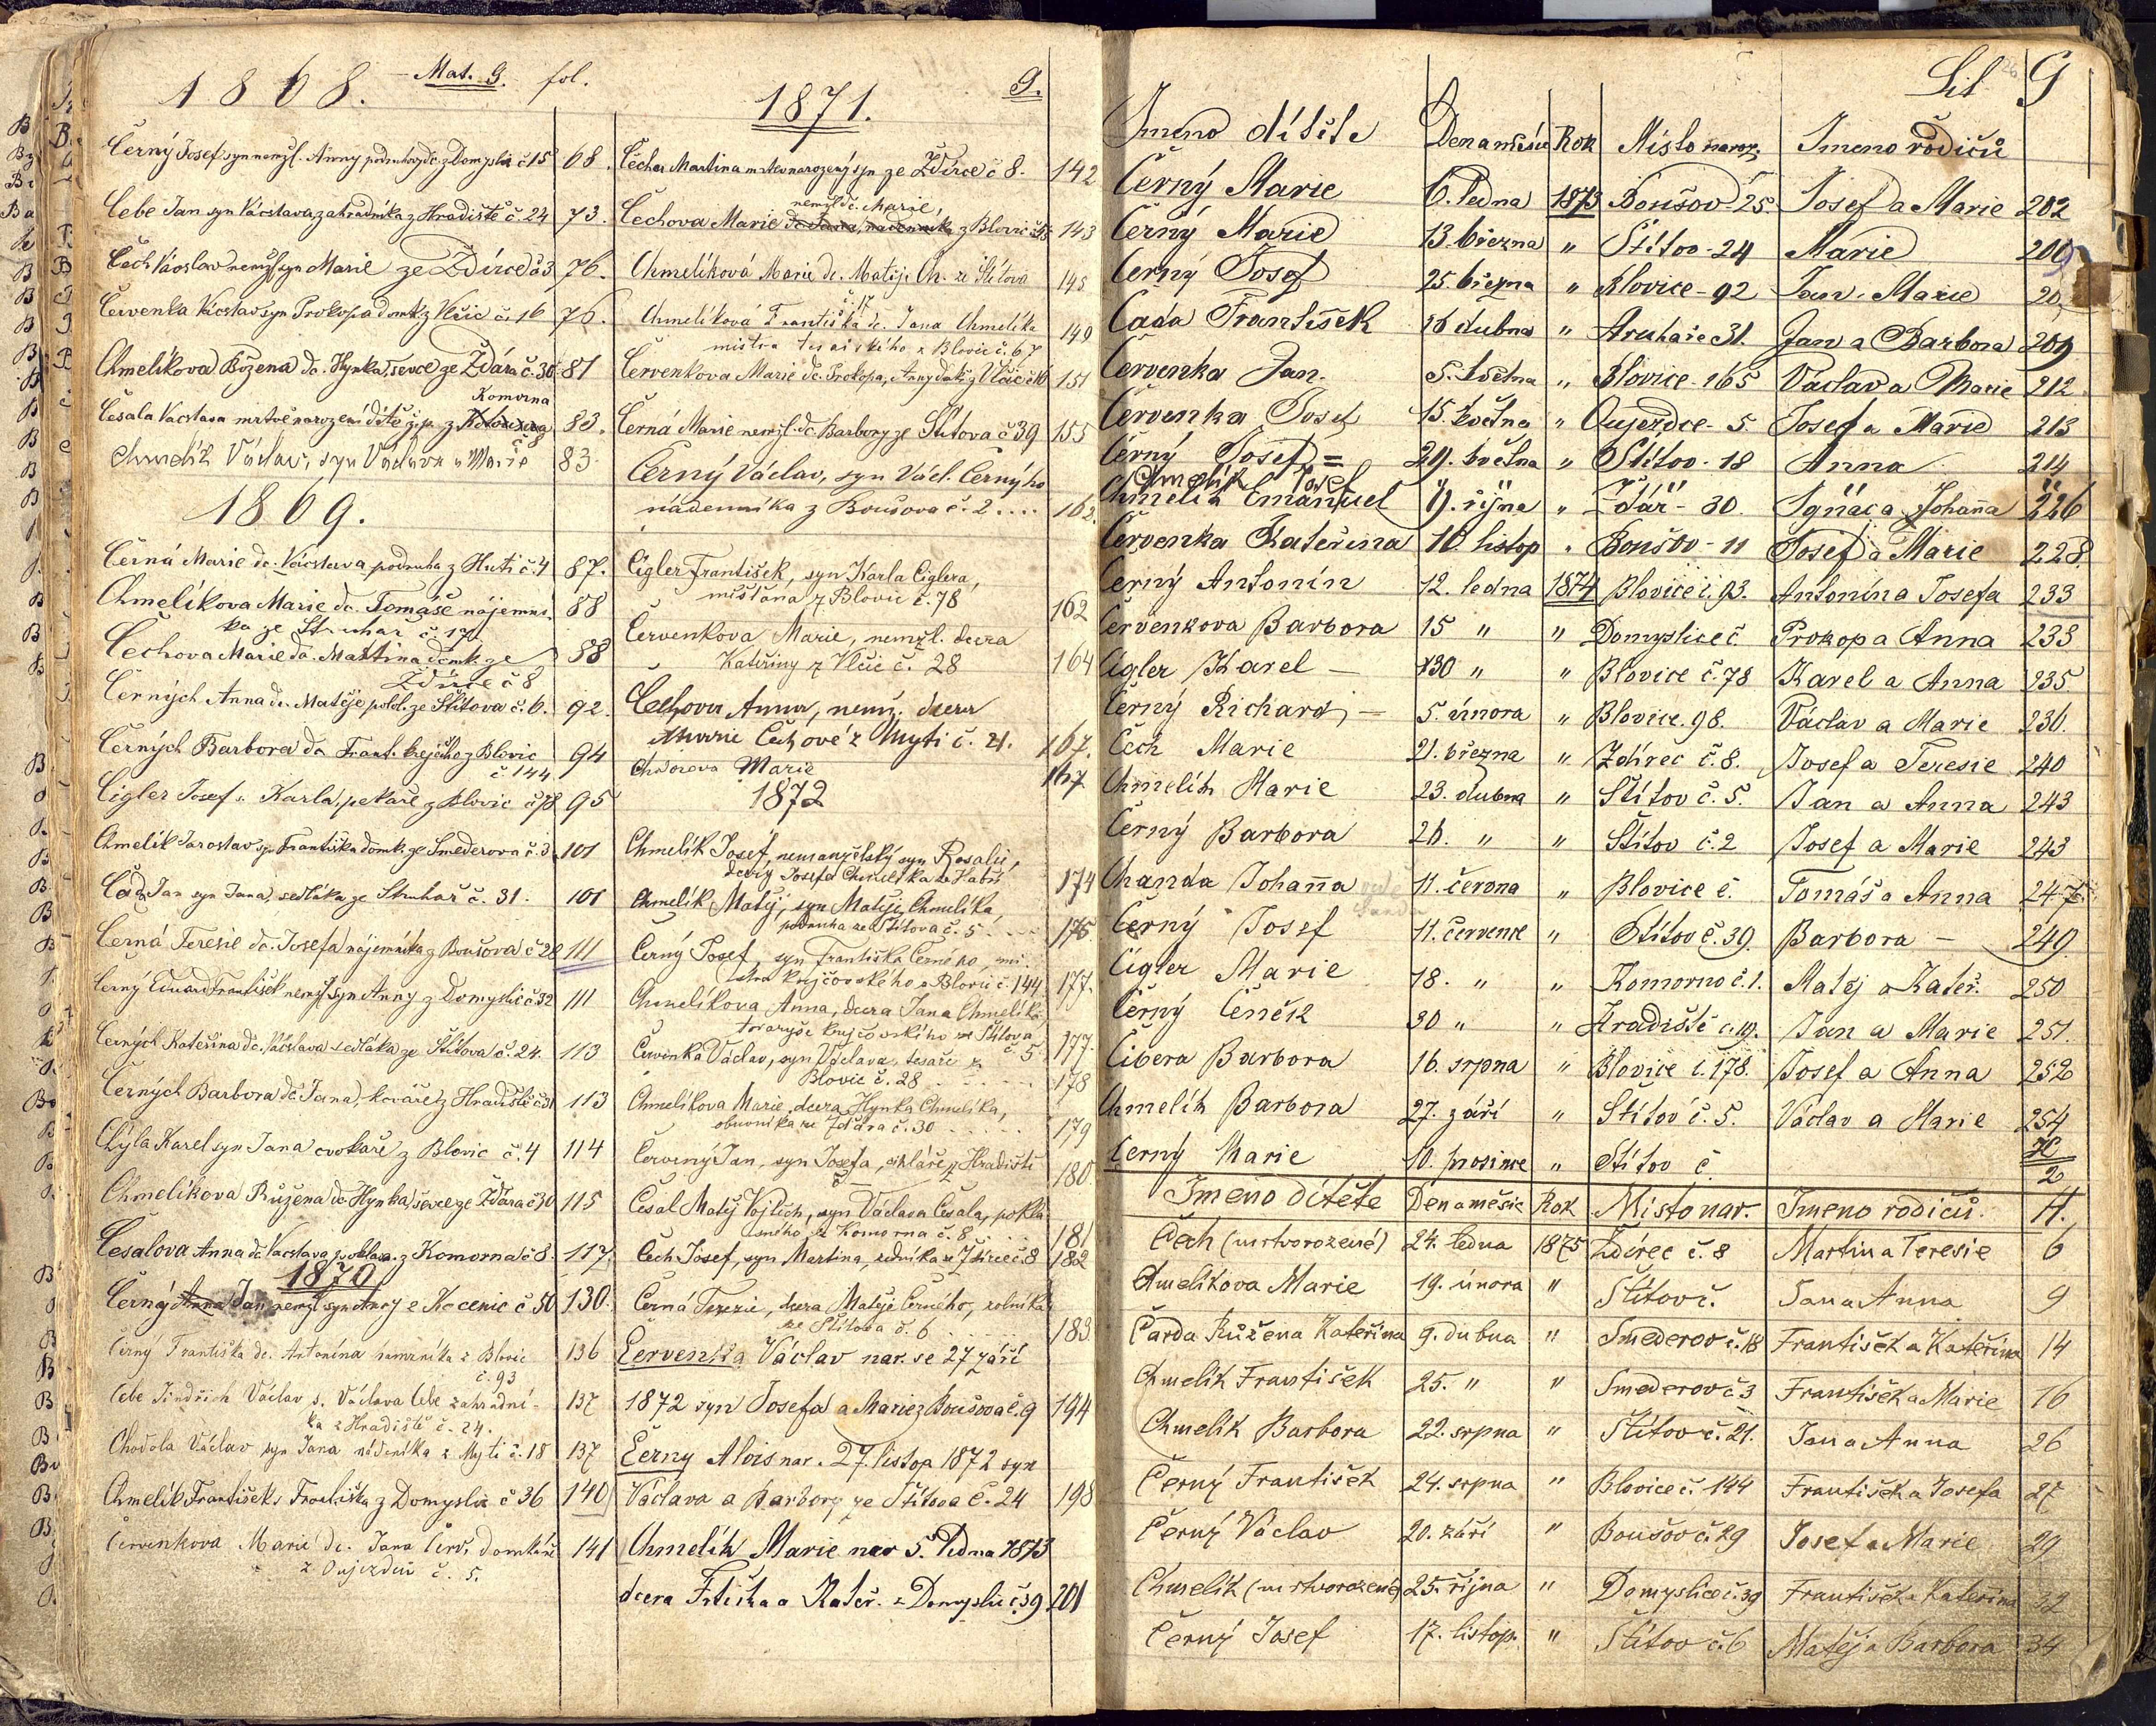 1868. Mat. G. fol.
Černý Josef syn nemžl. Anny podruhyně z Domyslic č 15 68.
Cebe Jan syn Václava zahradníka z Hradiště č. 24 73.
Čech Václav nemžl syn Marie ze Ždírce č 3 76.
Červenka Václav syn Prokopa domk. z Vlčic č. 16 76.
Chmelíkova Božena dc. Hynka, ševce ze Ždára č. 30 81
Komorna
Česala Vacslava mrtvě narozené dítě z č 8 83.
Chmelík Václav, syn Václava a Marie 83.
1869.
Černá Marie dc. Václava podruha z Huti č. 4 87.
Chmelíkova Marie dc. Tomáše nájemní- 88
ka ze Struhař č. 13.
Čechova Marie dc. Martina domk. ze 88
Ždírce č 8
Černých Anna dc. Matěje polol. ze Štítova č. 6. 92.
Černých Barbora dc Frant. krejčího z Blovic 94
č 144
Cigler Josef s. Karla, pekaře z Blovic č 78 95
Chmelík Jaroslav syn Františka domk. ze Smederova č. 3 101
Čada Jan syn Jana, sedláka ze Struhař č. 31. 101
Černá Teresie dc. Josefa nájemníka z Boušova č 28 111
Černý Eduard František nemžl syn Anny z Domyslic č. 32 111
Černých Kateřina dc. Václava sedláka ze Štítova č. 24. 113
Černých Barbora dc Jana, kováře z Hradiště č 31 113
Chýla Karel syn Jana cvokaře z Blovic č. 4 114
Chmelíkova Růžena dc Hynka, ševce ze Ždára č 30 115
Česalova Anna dc Vacslava poklas. z Komorna č 8. 117.
1870
Černý Anna Jan nemžl syn Anny z Kocenic č 50 130.
Černý Františka dc. Antonína z Blovic 136
č. 93
Cebe Jindřich Václav s. Václava Cebe zahradní- 137
ka z Hradiště č. 24.
Chodola Václav syn Jana nádeníka z Mýti č. 18 137
Chmelík František s Františka z Domyslic č 36 140
Červenkova Marie dc. Jana Červ. domkáře 141
z Oujezdu č. 5.
1871. G.
Čecha Martina mrtvonarozený syn ze Ždírce č 8. 142
nemžl dc. Marie,
Čechova Marie dc Jana, nádeníka z Blovic 143
Chmelíková Marie dc. Matěje Ch. ze Štítova 145
č. 17
Chmelíková Františka dc. Jana Chmelíka 149
mistra z Blovic č. 67
Červenkova Marie dc. Prokopa, Anny z Vlčic č 16 151
Černá Marie nemžl. dc. Barbory ze Štítova č 39 155
Černý Václav, syn Václ. Černýho
nádenníka z Boušova č. 2.... 162.
Cigler František, syn Karla Ciglera,
měšťana z Blovic č. 78 162
Červenkova Marie, nemžl. dcera
Kateřiny z Vlčic č. 28 164
Čechova Anna, nemž. dcera
Marie Čechové z Mýti č. 21. 167.
Marie 167
1872
Chmelík Josef, nemanželský syn Rosalie,
dcery Josefa Chmelíka z Hutí 174
Chmelík Matěj, syn Matěje Chmelíka,
podruha ze Štítova č. 5 175
Černý Josef, syn Františka Černého mi-
stra krejčovského z Blovic č. 144 177.
Chmelíkova Anna, dcera Jana Chmelíka
tovaryše krejčovského ze Štítova č. 5 177.
Červenka Václav, syn Václava, tesaře z
Blovic č. 28 178
Chmelíkova Marie, dcera Hynka Chmelíka,
obuvníka ze Ždára č. 30 179
Červený Jan, syn Josefa, skláře z Hradiště 180.
Česal Matěj Vojtěch, syn Václava Česala, pokla-
sného, z Komorna č. 8 181
Čech Josef, syn Martina, rolníka ze Ždírce č. 8 182
Černá Terezie, dcera Matěje Černého, rolníka
ze Štítova č. 6 183.
Červenka Václav nar. se 27 září
1872 syn Josefa a Marie z Boušova č. 9 194
Černy Alois nar. 27. listop 1872 syn
Václava a Barbory ze Štítova č. 24 198
Chmelík Marie nar 5. Ledna 1873
dcera Frtiška a Kateř. z Domyslic č. 39 201
Lit G
Jmeno dítěte Den a měsíc Rok Místo naroz. Jmeno rodičů
Černý Marie 6. ledna 1873 Boušov - 25. Josef a Marie 202
Černý Marie 13. března " Štítov - 24 Marie
Černý Josef 25. března " Blovice - 92 Jan. Marie
Čada František 16 dubna " Struhaře 31. Jan a Barbora 209
Červenka Jan. 5. května " Blovice - 165 Vaclav a Marie 212
Červenka Josef 15. května " Oujezdce - 5 Josef a Marie 213
Černý Josef = 29. května " Štítov - 18 Anna 214
Chmelík Josef " " "
Chmelík Emanuel 9. října " Ždár - 30. Ignác a Johanna 226
Červenka Kateřina 10. listop " Boušov - 11 Josef a Marie 228.
Černý Antonín 12. ledna 1874 Blovice č. 93. Antonín a Josefa 233
Červenkova Barbora 15 " " Domyslice č. Prokop a Anna 233
Cigler Karel — 30 " " Blovice č. 78 Karel a Anna 235.
Černý Richard — 5. února " Blovice. 98. Václav a Marie 236.
Čech Marie 21. března " Ždírec č. 8. Josef a Teresie 240
Chmelík Marie 23. dubna " Štítov č. 5. Jan a Anna 243
Černý Barbora 26. " " Štítov č. 2 Josef a Marie 243
Chanda Johanna 11. června " Blovice č. Tomáš a Anna 247
Černý Josef 11. července " Štítov č. 39. Barbora — 249.
Cigler Marie 18. " " Komorno č. 1. Matěj a Kateř. 250
Černý Čeněk 30 " " Hradiště č. 19. Jan a Marie 251.
Cibera Barbora 16. srpna " Blovice č. 178. Josef a Anna 252
Chmelík Barbora 27. září " Štítov č. 5. Václav a Marie 254
Černý Marie 10. prosince " Štítov č H 2
Jmeno dítěte Den a měsíc Rok Místo nar. Jmeno rodičů. H.
Čech (mrtvorozené) 24. ledna 1875 Ždírec č. 8 Martin a Teresie 6
Chmelikova Marie 19. února " Štítov č. Jan a Anna 9
Čarda Růžena Kateřina 9. dubna " Smederov č. 18 František a Kateřina 14
Chmelík František 25. " " Smederov č 3 František a Marie 16
Chmelík Barbora 22. srpna " Štítov č. 21. Jan a Anna 26
Černý František 24. srpna " Blovice č. 144 František a Josefa 27
Černý Václav 20. září " Boušov č. 29 Josef a Marie 29
Chmelík (mrtvorozené) 25. října " Domyslice č. 39 František a Kateřina 32
Černý Josef 17. listop. " Štítov č. 6 Matěj a Barbora 34